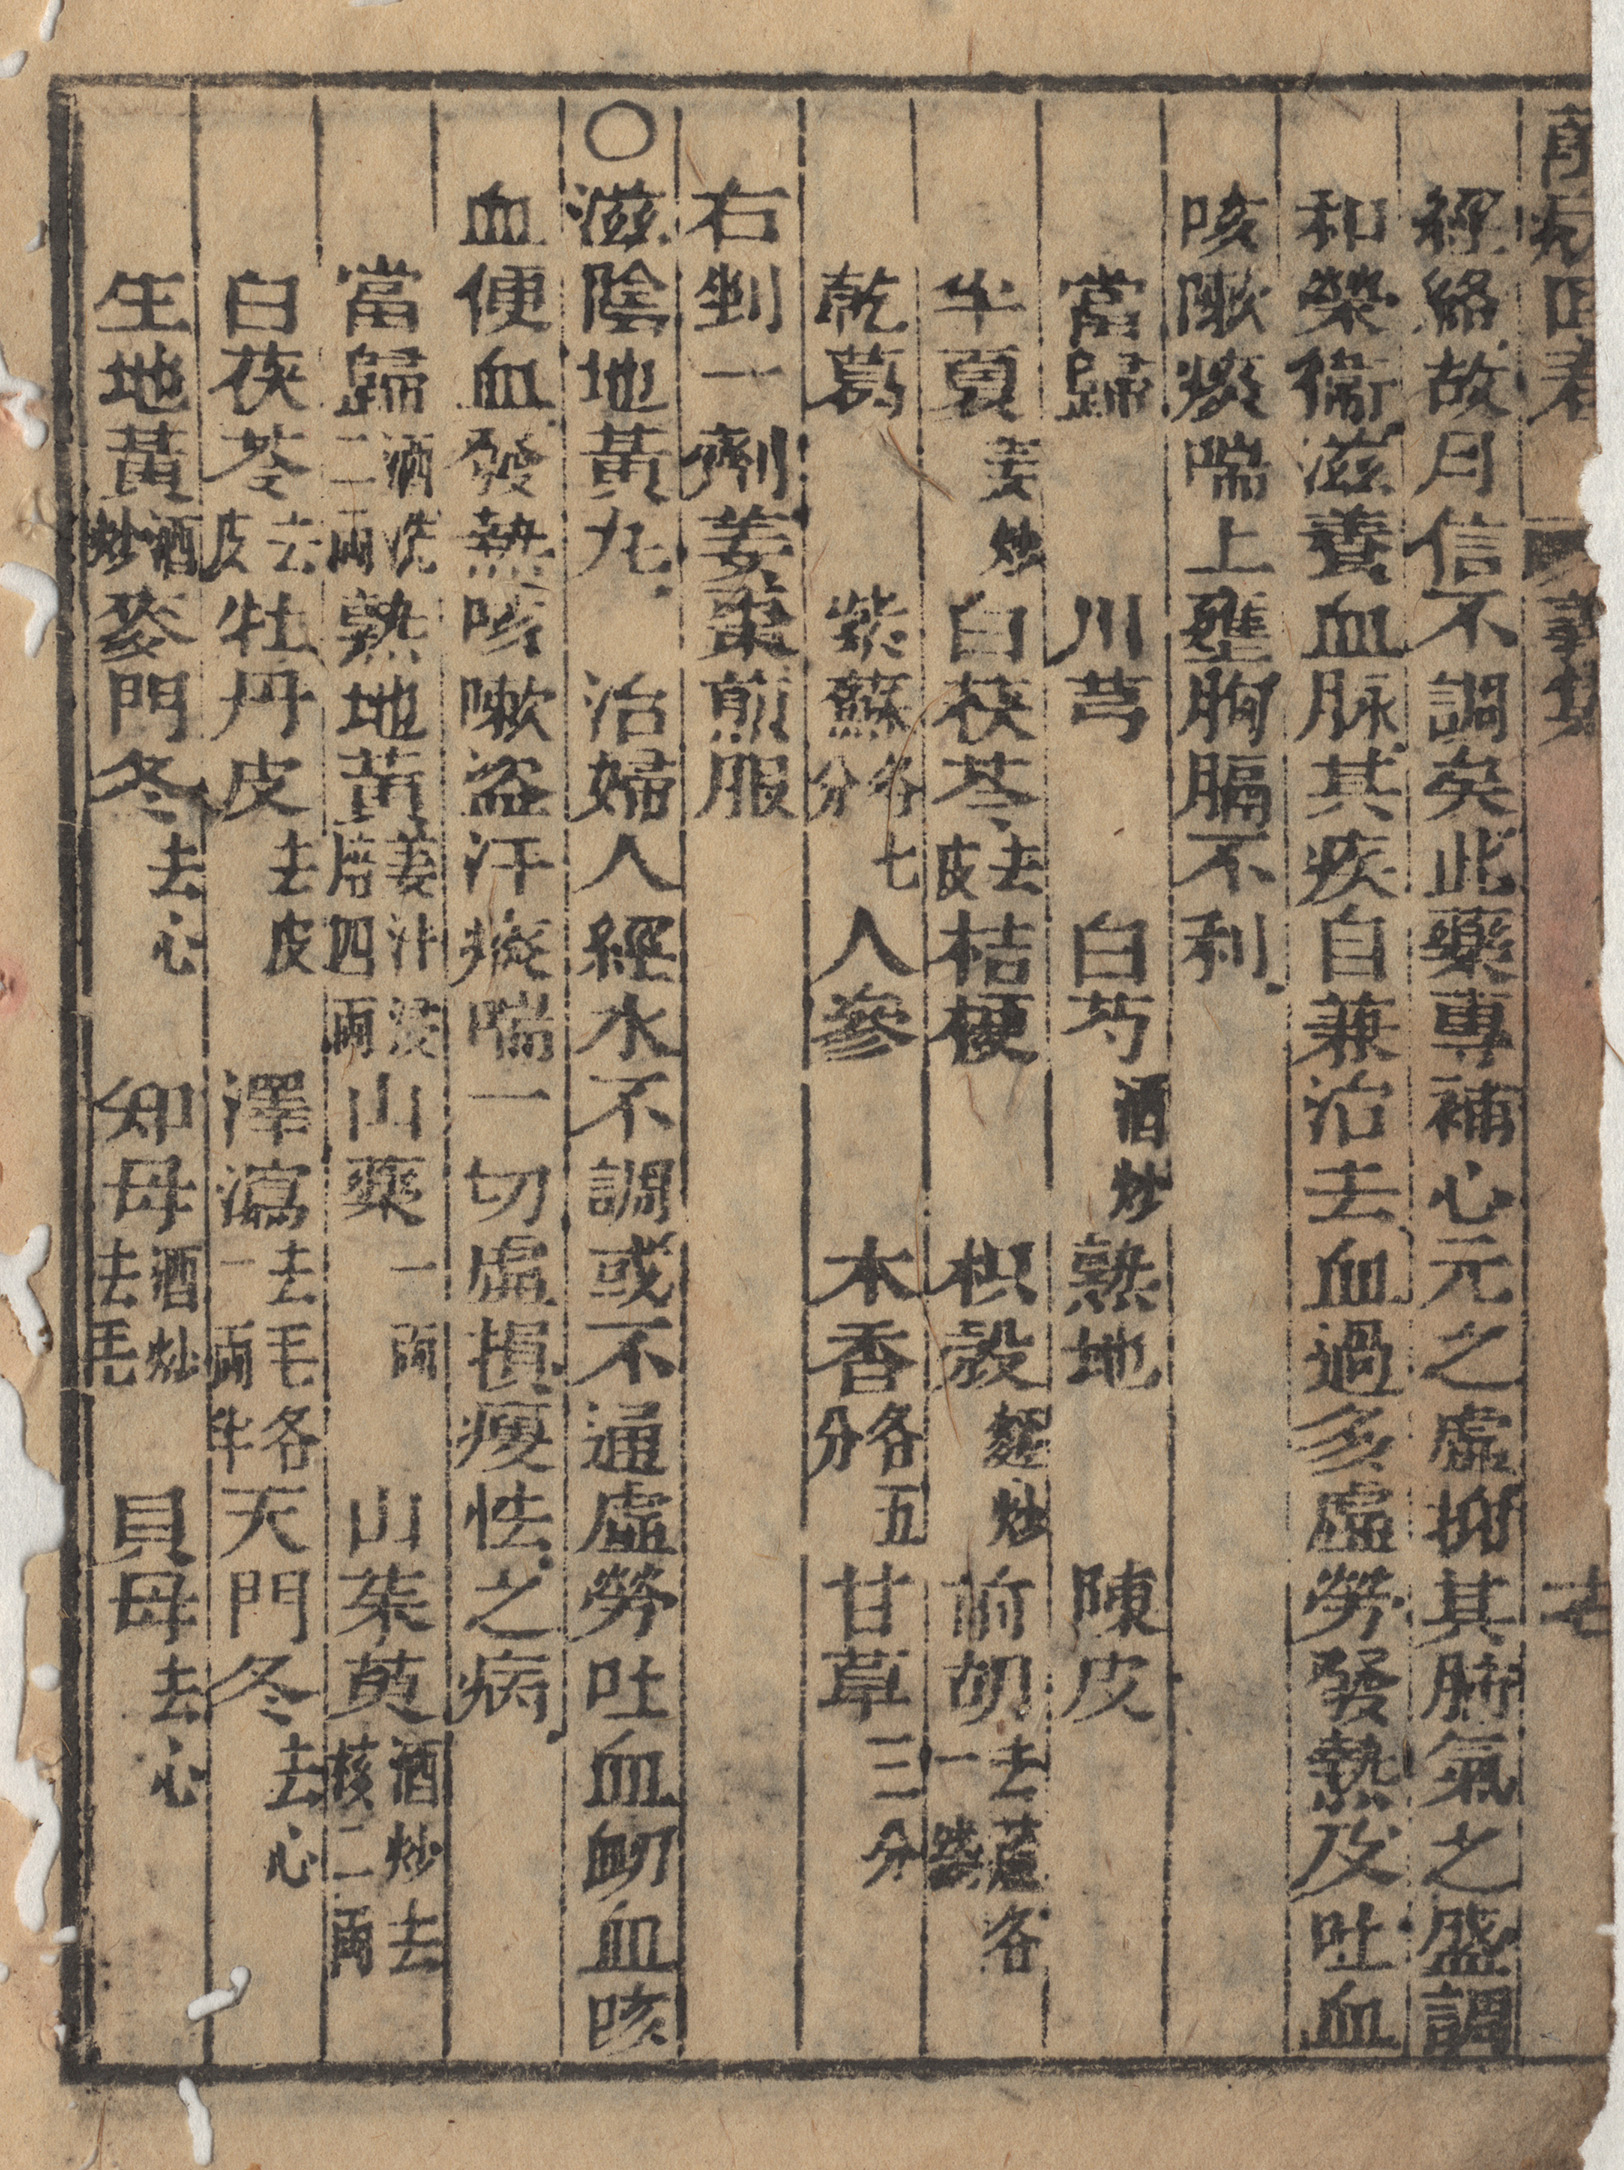 萬病回春
經絡故月信不調矣此藥專補心元之虛抑其肺氣之盛調
和榮衛滋養血脉其疾自兼治去血過多虛勞發熱及吐血
咳嗽痰喘上壅胸膈不利
當歸 川芎 白芍酒炒 熟地 陳皮
半夏姜炒 白茯苓去皮 桔梗 枳殼麸炒 前胡去蘆各一錢
乾葛 紫蘇各七分 人參 木香各五分 甘草三分
右剉一劑姜棗煎服
○滋陰地黃丸 治婦人經水不調或不通虛勞吐血衂血咳
血便血發熱咳嗽盜汗痰喘一切虛損瘦怯之病
當歸酒洗二兩 熟地黃姜汁浸焙四兩 山藥一兩 山茱萸酒炒去核二兩
白茯苓去皮 牡丹皮去皮 澤瀉去毛各一兩半 天門冬去心
生地黃酒炒 麥門冬去心 知母酒炒去毛 貝母去心